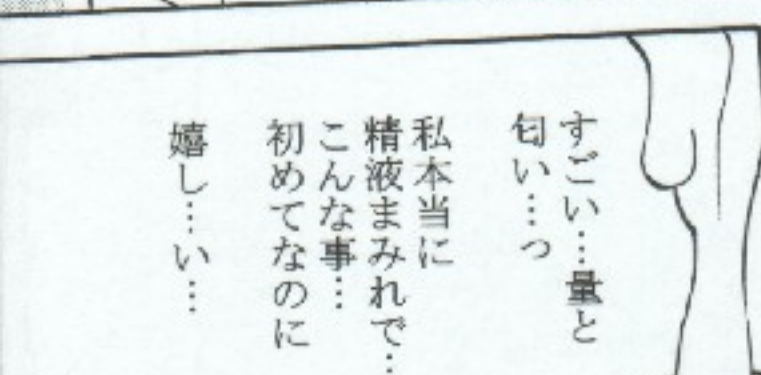 すごい…量と
匂い…っ
私本当に
精液まみれで…
こんな事…
初めてなのに
嬉し…い…